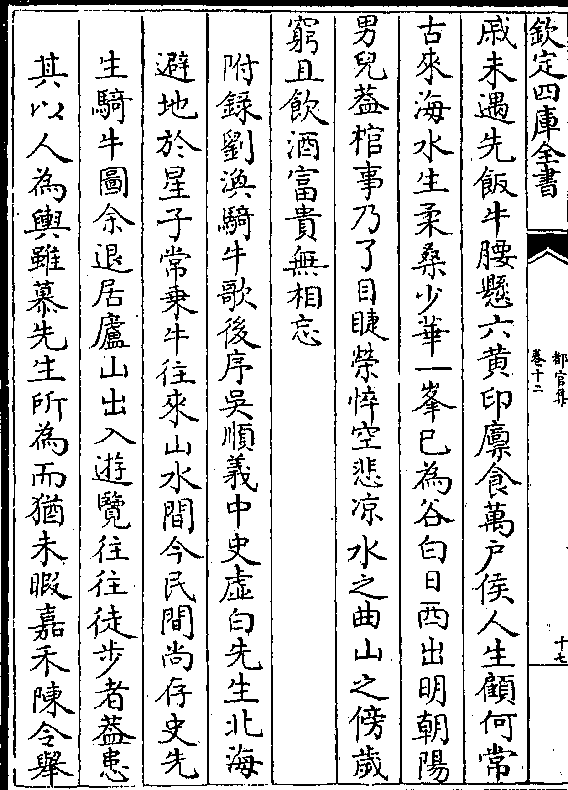 欽定四庫全書
都官集
卷十二
十七
戚未遇先飯牛腰懸六黄印廪食萬户侯人生顧何常
古來海水生柔桑少華一峯已為谷白日西出明朝陽
男兒葢棺事乃了目睫榮悴空悲凉水之曲山之傍歲
窮且飲酒富貴無相忘
附録劉渙騎牛歌後序吳順義中史虛白先生北海
避地於星子常乗牛往來山水間今民間尚存史先
生騎牛圖余退居廬山出入遊覽往往徒步者葢患
其以人為輿雖慕先生所為而猶未暇嘉禾陳令舉